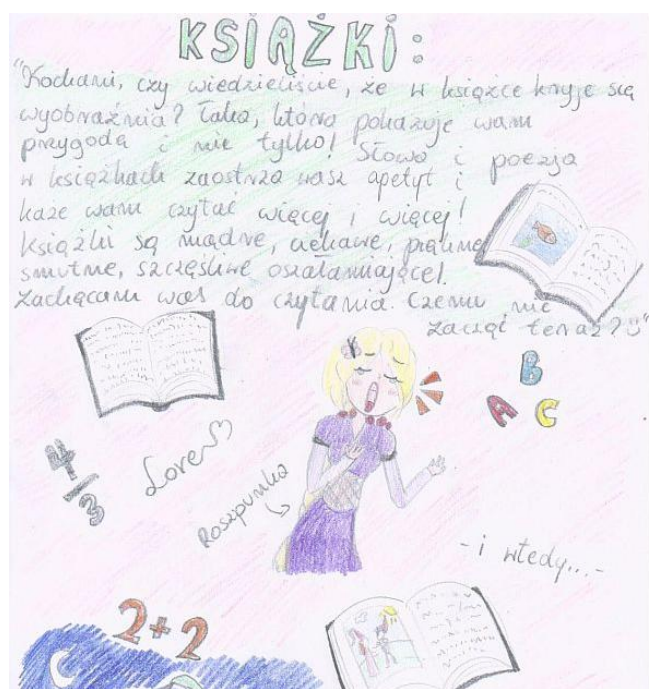 KSIĄŻKI:
"Kochani, czy wiedzieliście, że w książce kryje się
wyobraźnia? Taka, która pokazuje wam
przygodę i nie tylko! Słowa i poezja
w książkach zaostrza wasz apetyt i
każe wam czytać więcej i więcej!
Książki są mądre, ciekawe, piękne
smutne, szczęśliwe oszałamiające!.
Zachęcam was do czytania. Czemu nie
zacząć teraz? "
B
A C
4
3
Love
Roszpunka
- i wtedy...-
2+2